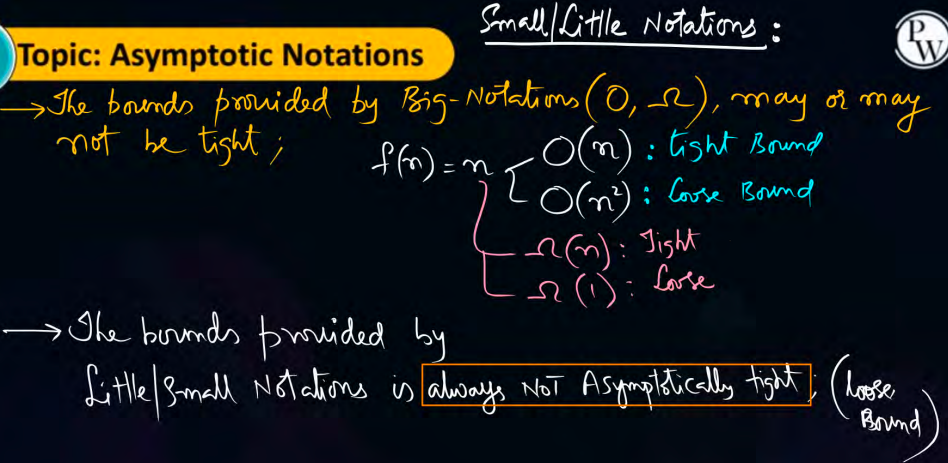 Small/Little Notations :
PW
Topic: Asymptotic Notations
→ The bounds provided by Big-Notations (O, Ω), may or may
not be tight ;
f(n) = n
O(n) : tight Bound
O(n²) : Loose Bound
Ω(n) : Tight
Ω(1) : Loose
→ The bounds provided by
Little/Small Notations is always NOT Asymptotically tight ; (Loose
Bound)